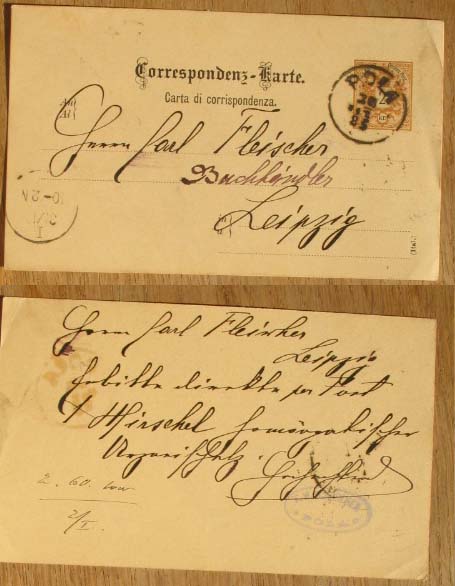 Correspondenz-Karte.
Carta di corrispondenza.
POLA
Herrn Carl Fleischer
Buchhändler
Leipzig
Herrn Carl Fleischer
Leipzig
Erbitte direkte per Post
1 Hirschel Homöopatischer
Arzneischatz.
2.60. 
2/I.
POLA